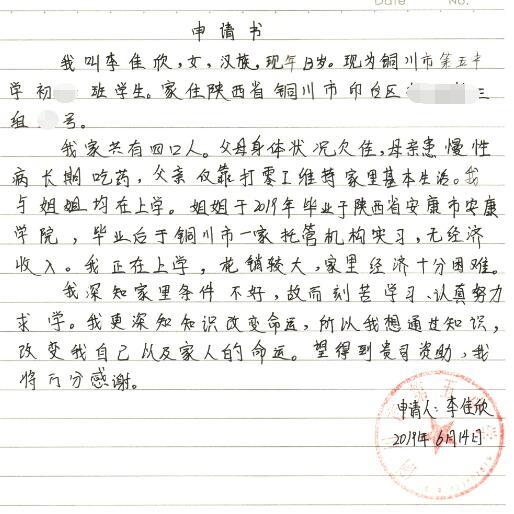 Date No.
申请书
我叫李佳欣,女,汉族,现年13岁。现为铜川市第五中
学初 班学生。家住陕西省铜川市印台区 三
组 号。
我家共有四口人。父母身体状况欠佳,母亲患慢性
病长期吃药,父亲仅靠打零工维持家里基本生活。我
与姐姐均在上学。姐姐于2019年毕业于陕西省安康市安康
学院,毕业后于铜川市一家托管机构实习,无经济
收入。我正在上学,花销较大,家里经济十分困难。
我深知家里条件不好,故而刻苦学习、认真努力
求学。我更深知知识改变命运,所以我想通过知识,
改变我自己以及家人的命运。望得到贵司资助,我
将万分感谢。
申请人:李佳欣
2019年6月14日